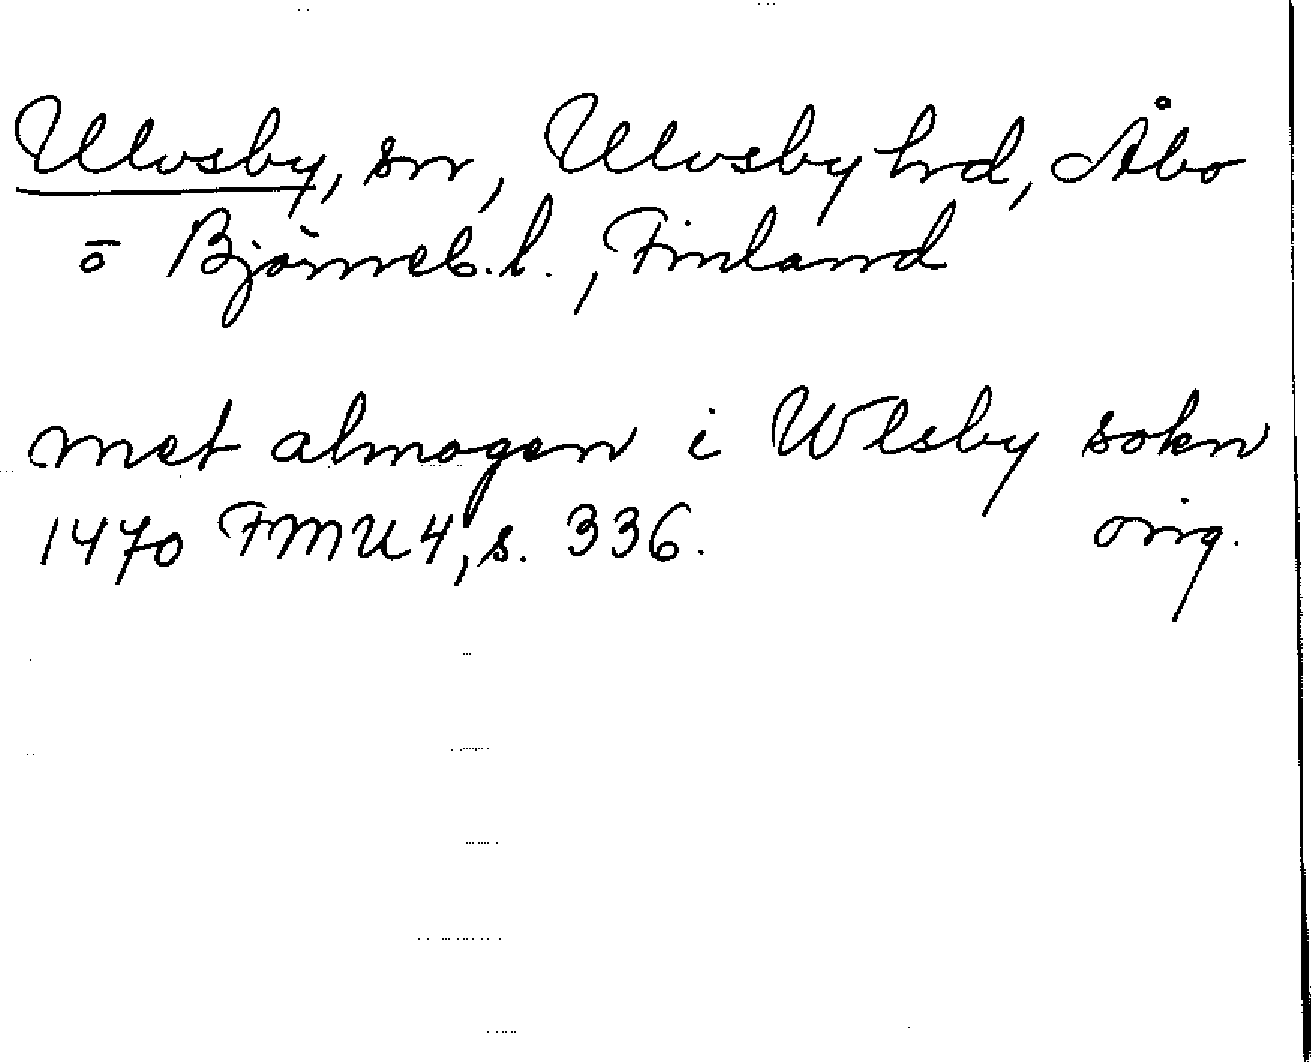 Ulvsby, sn, Ulvsby hrd, Åbo
o Björneb.l., Finland
met almogen i Wlsby sokn
1470 FMU 4, s. 336. orig.